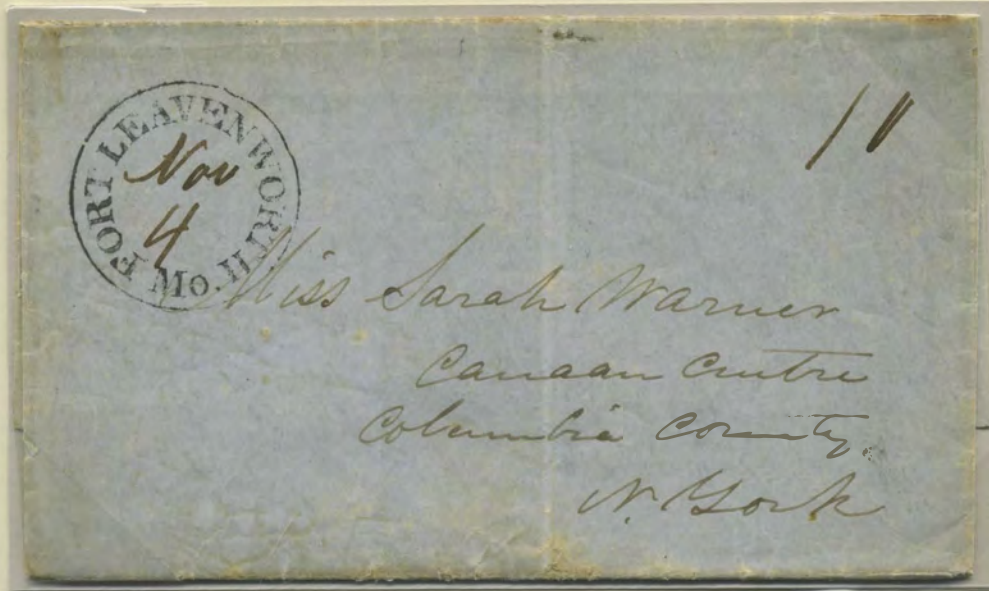 FORT LEAVENWORTH Mo.
Nov
4
10
Miss Sarah Warner
Canaan Centre
Columbia County.
N. York